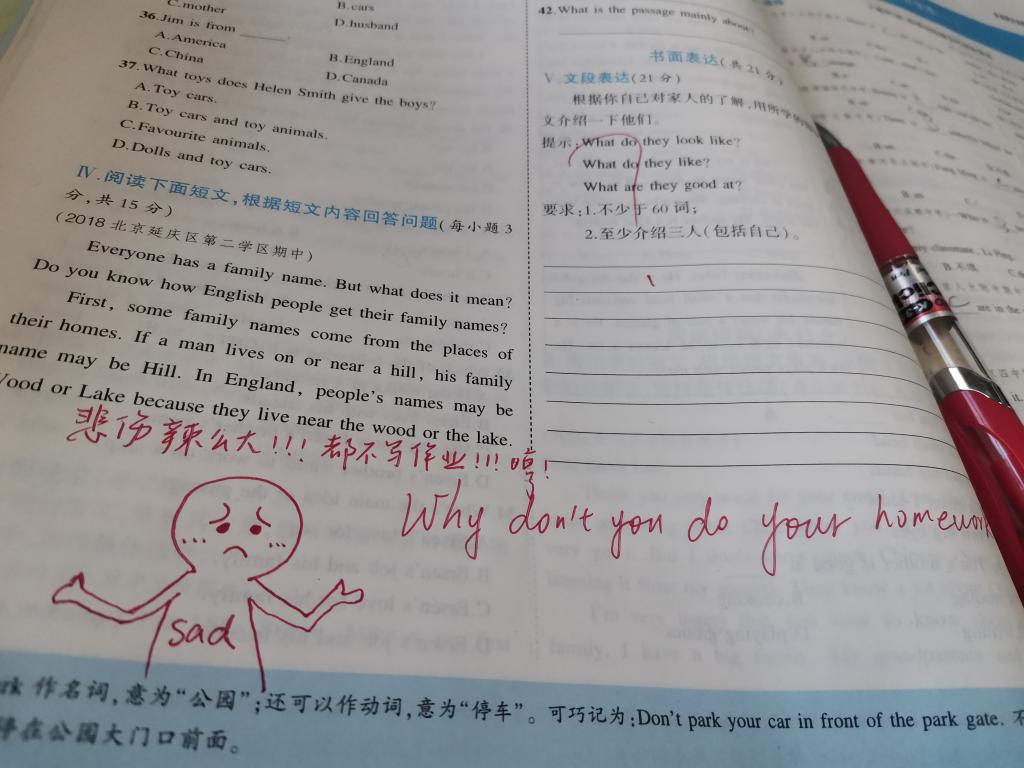 C.mother
B.cars
D.husband
36.Jim is from ______.
A.America
B.England
C.China
D.Canada
37.What toys does Helen Smith give the boys?
A.Toy cars.
B.Toy cars and toy animals.
C.Favourite animals.
D.Dolls and toy cars.
Ⅳ.阅读下面短文,根据短文内容回答问题(每小题3
分,共15分)
(2018北京延庆区第二学区期中)
Everyone has a family name. But what does it mean?
Do you know how English people get their family names?
First, some family names come from the places of
their homes. If a man lives on or near a hill, his family
name may be Hill. In England, people's names may be
Wood or Lake because they live near the wood or the lake.
悲伤辣么大!!!都不写作业!!!哼!
Why don't you do your
sad
42.What is the passage mainly about?
书面表达(共21分)
Ⅴ.文段表达(21分)
根据你自己对家人的了解,用所学的
文介绍一下他们。
提示:What do they look like?
What do they like?
What are they good at?
要求:1.不少于60词;
2.至少介绍三人(包括自己)。
作名词,意为“公园”;还可以作动词,意为“停车”。可巧记为:Don't park your car in front of the park gate. 不
停在公园大门口前面。